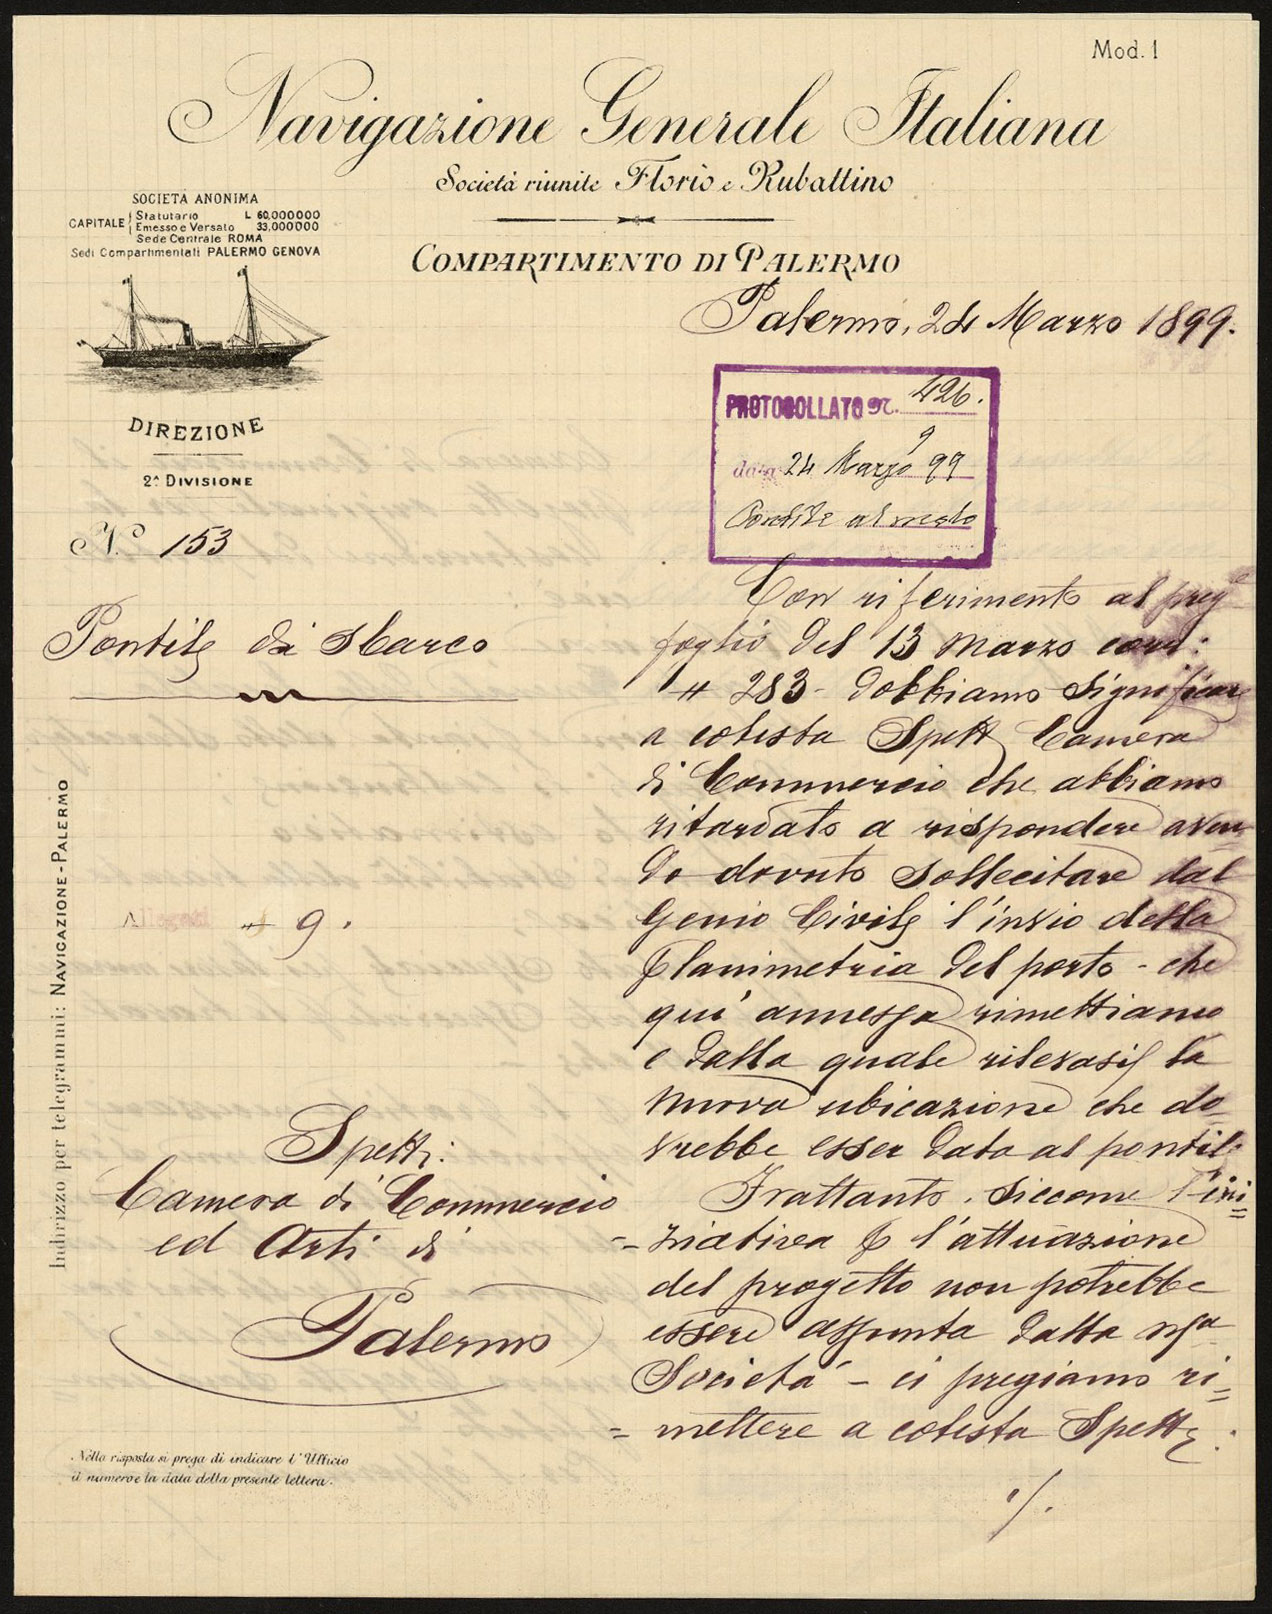 Mod. 1
Navigazione Generale Italiana
Società riunite Florio e Rubattino
SOCIETÀ ANONIMA
CAPITALE Statutario L 60,000000
Emesso e Versato 33,000000
Sede Centrale ROMA
Sedi Compartimentali PALERMO GENOVA
COMPARTIMENTO DI PALERMO
Palermo, 24 Marzo 1899.
PROTOCOLLATO N. 426.
9
data 24 Marzo 99
DIREZIONE
2ª DIVISIONE
N.º 153
Pontile di Sbarco
Con riferimento al preg.
foglio del 13 Marzo corr:
N 283 - dobbiamo significare
a cotesta Spett Camera
di Commercio che abbiamo
ritardato a rispondere aven
do dovuto sollecitare dal
Genio Civile l'invio della
planimetria del porto - che
qui annessa rimettiamo
e dalla quale rilevasi la
nuova ubicazione che do
vrebbe esser data al pontile
Frattanto, siccome l'ini=
=ziativa e l'attuazione
del progetto non potrebbe
essere assunta dalla nsa
Società - ci pregiamo ri=
= mettere a cotesta Spett:
./.
Allegati N 9.
Spett:
Camera di Commercio
ed Arti di
Palermo
Indirizzo per telegrammi: NAVIGAZIONE - PALERMO
Nella risposta si prega di indicare l'Ufficio
il numero e la data della presente lettera.